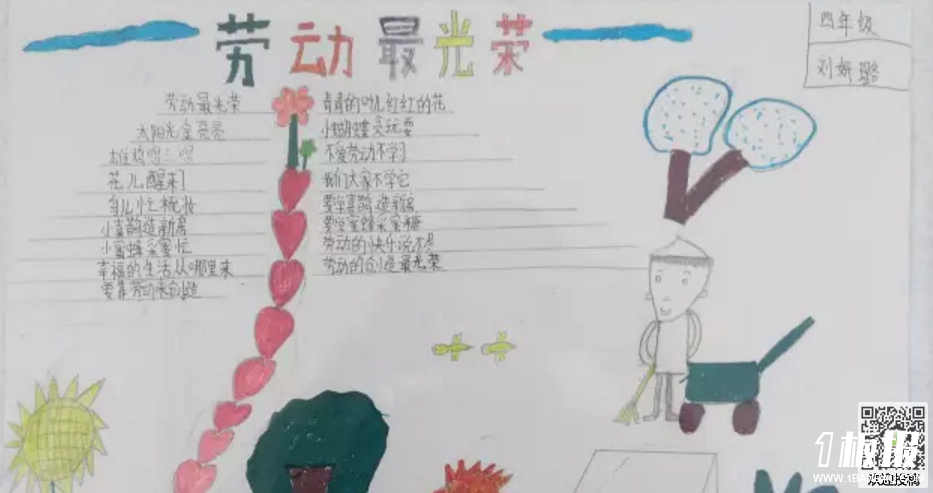 劳动最光荣
四年级
刘妍璐
劳动最光荣
太阳光金亮亮
雄鸡唱三唱
花儿醒来了
鸟儿忙梳妆
小喜鹊造新房
小蜜蜂采蜜忙
幸福的生活从哪里来
要靠劳动来创造
青青的叶儿红红的花
小蝴蝶贪玩耍
不爱劳动不学习
我们大家不学它
要学喜鹊造新房
要学蜜蜂采蜜糖
劳动的快乐说不尽
劳动的创造最光荣
1板报
WWW.1BANBAO.COM
欢迎投稿